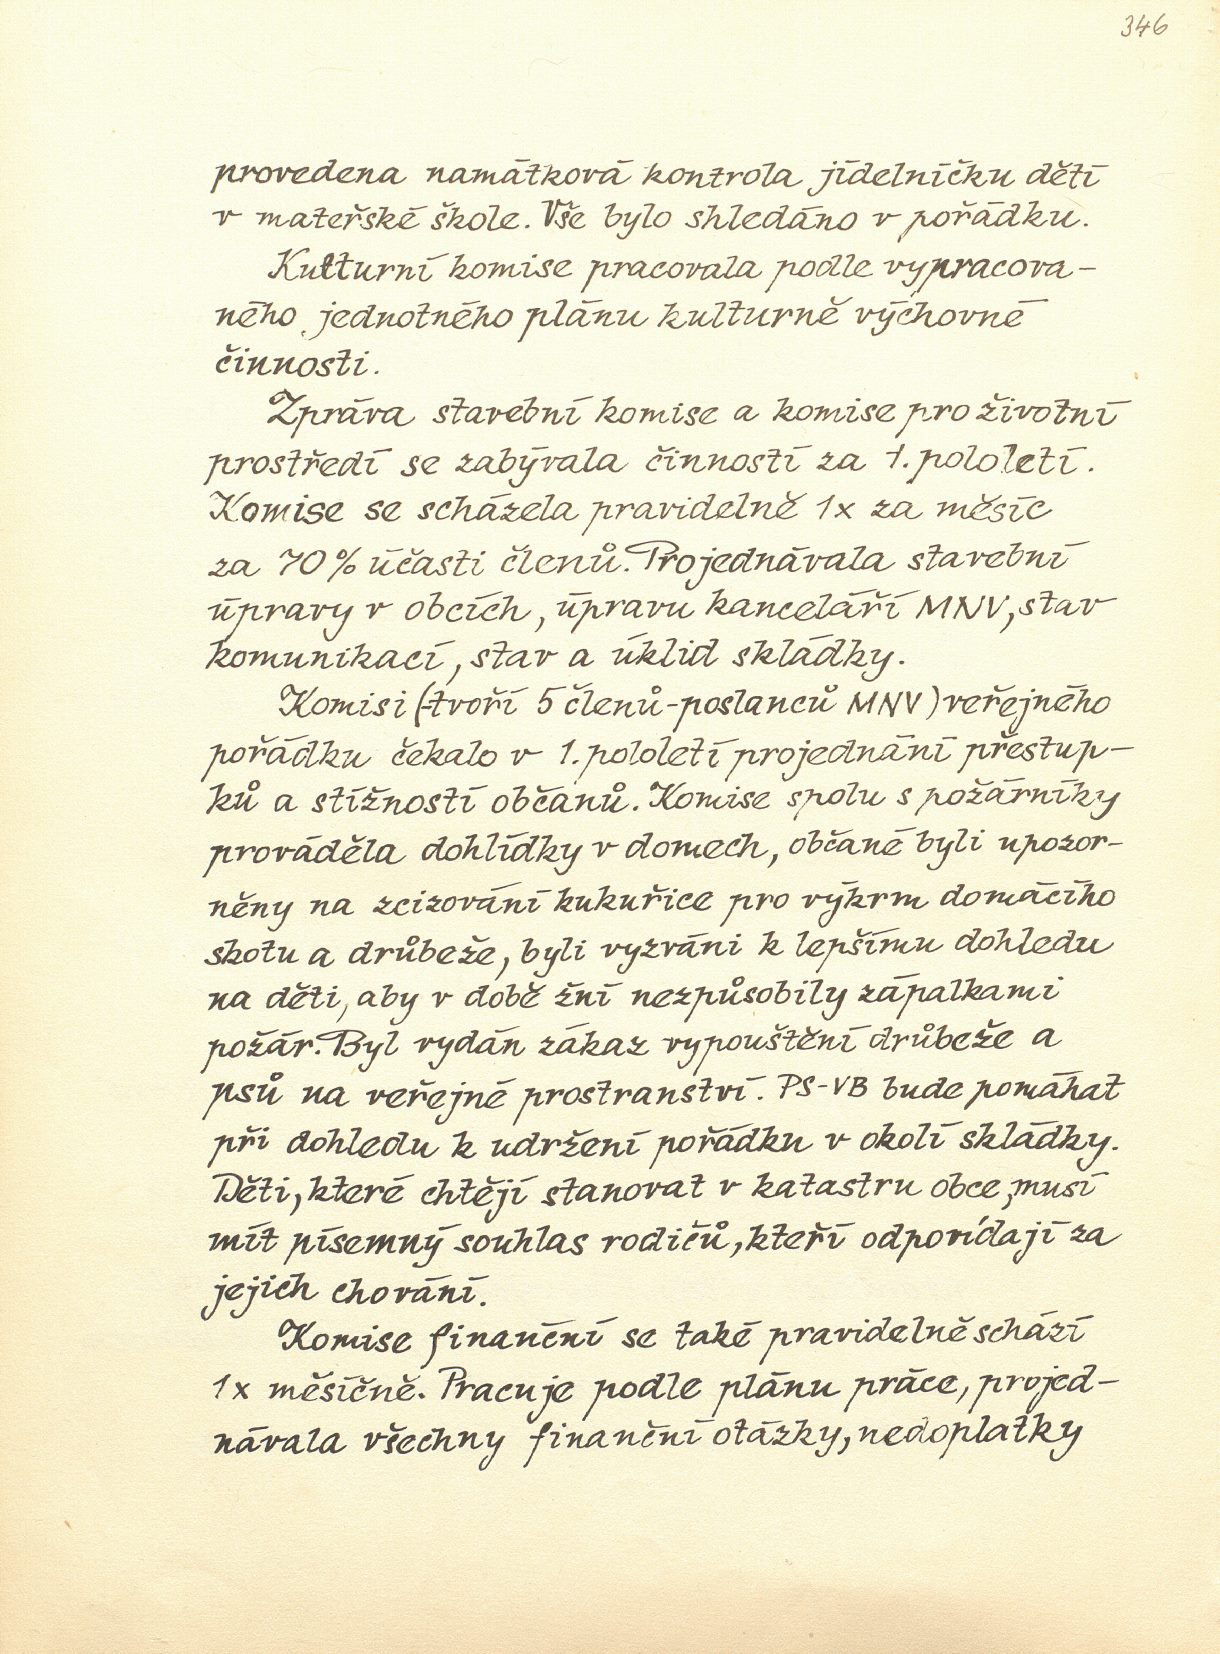 346
provedena namátková kontrola jídelníčku dětí
v mateřské škole. Vše bylo shledáno v pořádku.
Kulturní komise pracovala podle vypracova-
ného jednotného plánu kulturně výchovné
činnosti.
Zpráva stavební komise a komise pro životní
prostředí se zabývala činností za 1. pololetí.
Komise se scházela pravidelně 1x za měsíc
za 70% účasti členů. Projednávala stavební
úpravy v obcích, úpravu kanceláří MNV, stav
komunikací, stav a úklid skládky.
Komisi (tvoří 5 členů-poslanců MNV) veřejného
pořádku čekalo v 1. pololetí projednání přestup-
ků a stížností občanů. Komise spolu s požárníky
prováděla dohlídky v domech, občané byli upozor-
něny na zcizování kukuřice pro výkrm domácího
skotu a drůbeže, byli vyzváni k lepšímu dohledu
na děti, aby v době žní nezpůsobily zápalkami
požár. Byl vydán zákaz vypouštění drůbeže a
psů na veřejné prostranství. PS-VB bude pomáhat
při dohledu k udržení pořádku v okolí skládky.
Děti, které chtějí stanovat v katastru obce, musí
mít písemný souhlas rodičů, kteří odpovídají za
jejich chování.
Komise finanční se také pravidelně schází
1x měsíčně. Pracuje podle plánu práce, projed-
návala všechny finanční otázky, nedoplatky